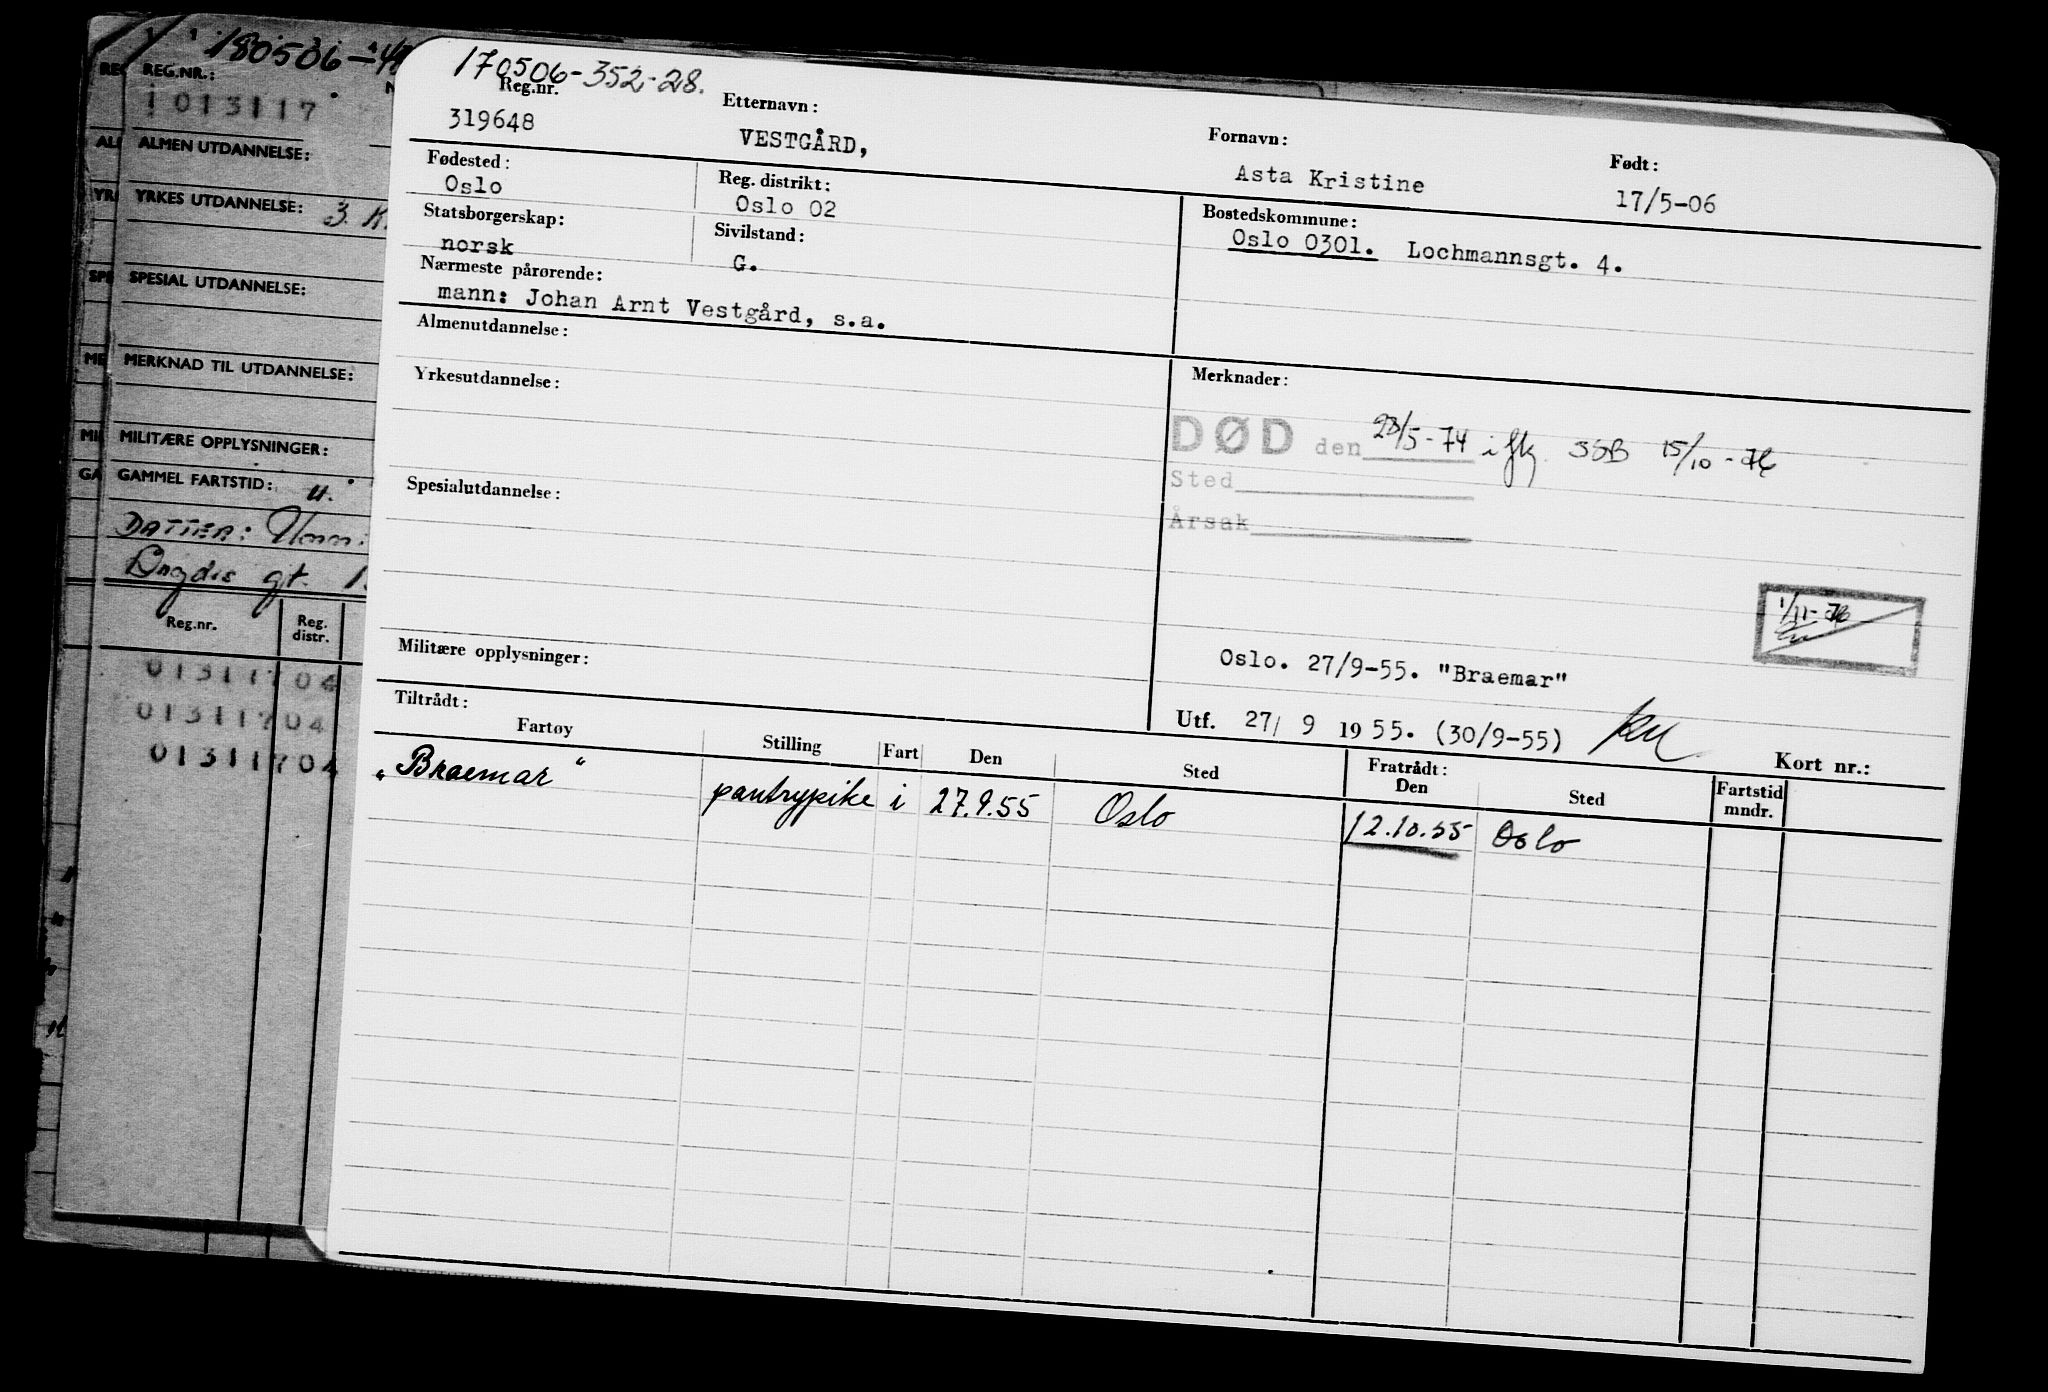 180506-
REG.NR.:
1013117
ALMEN UTDANNELSE:
YRKES UTDANNELSE: 3. K.
SPESIAL UTDANNELSE:
MERKNAD TIL UTDANNELSE:
MILITÆRE OPPLYSNINGER:
GAMMEL FARTSTID:
DATTER:
Dagdis gt.
Reg.nr. Reg. distr.
01311704
01311704
01311704
170506-352-28.
Reg.nr. Etternavn: Fornavn: Født:
319648 VESTGÅRD, Asta Kristine 17/5-06
Fødested: Reg. distrikt: Bostedskommune:
Oslo Oslo 02 Oslo 0301. Lochmannsgt. 4.
Statsborgerskap: Sivilstand:
norsk G.
Nærmeste pårørende:
mann: Johan Arnt Vestgård, s.a.
Almenutdannelse:
Yrkesutdannelse: Merknader:
DØD den 23/5-74 i flg. SSB 15/10-76
Sted
Årsak
Spesialutdannelse:
1/11-76
Militære opplysninger: Oslo. 27/9-55. "Braemar"
Utf. 27/ 9 1955. (30/9-55) Kort nr.:
Tiltrådt: Fratrådt:
Fartøy Stilling Fart Den Sted Den Sted Fartstid mndr.
"Braemar" pantrypike i 27.9.55 Oslo 12.10.55 Oslo